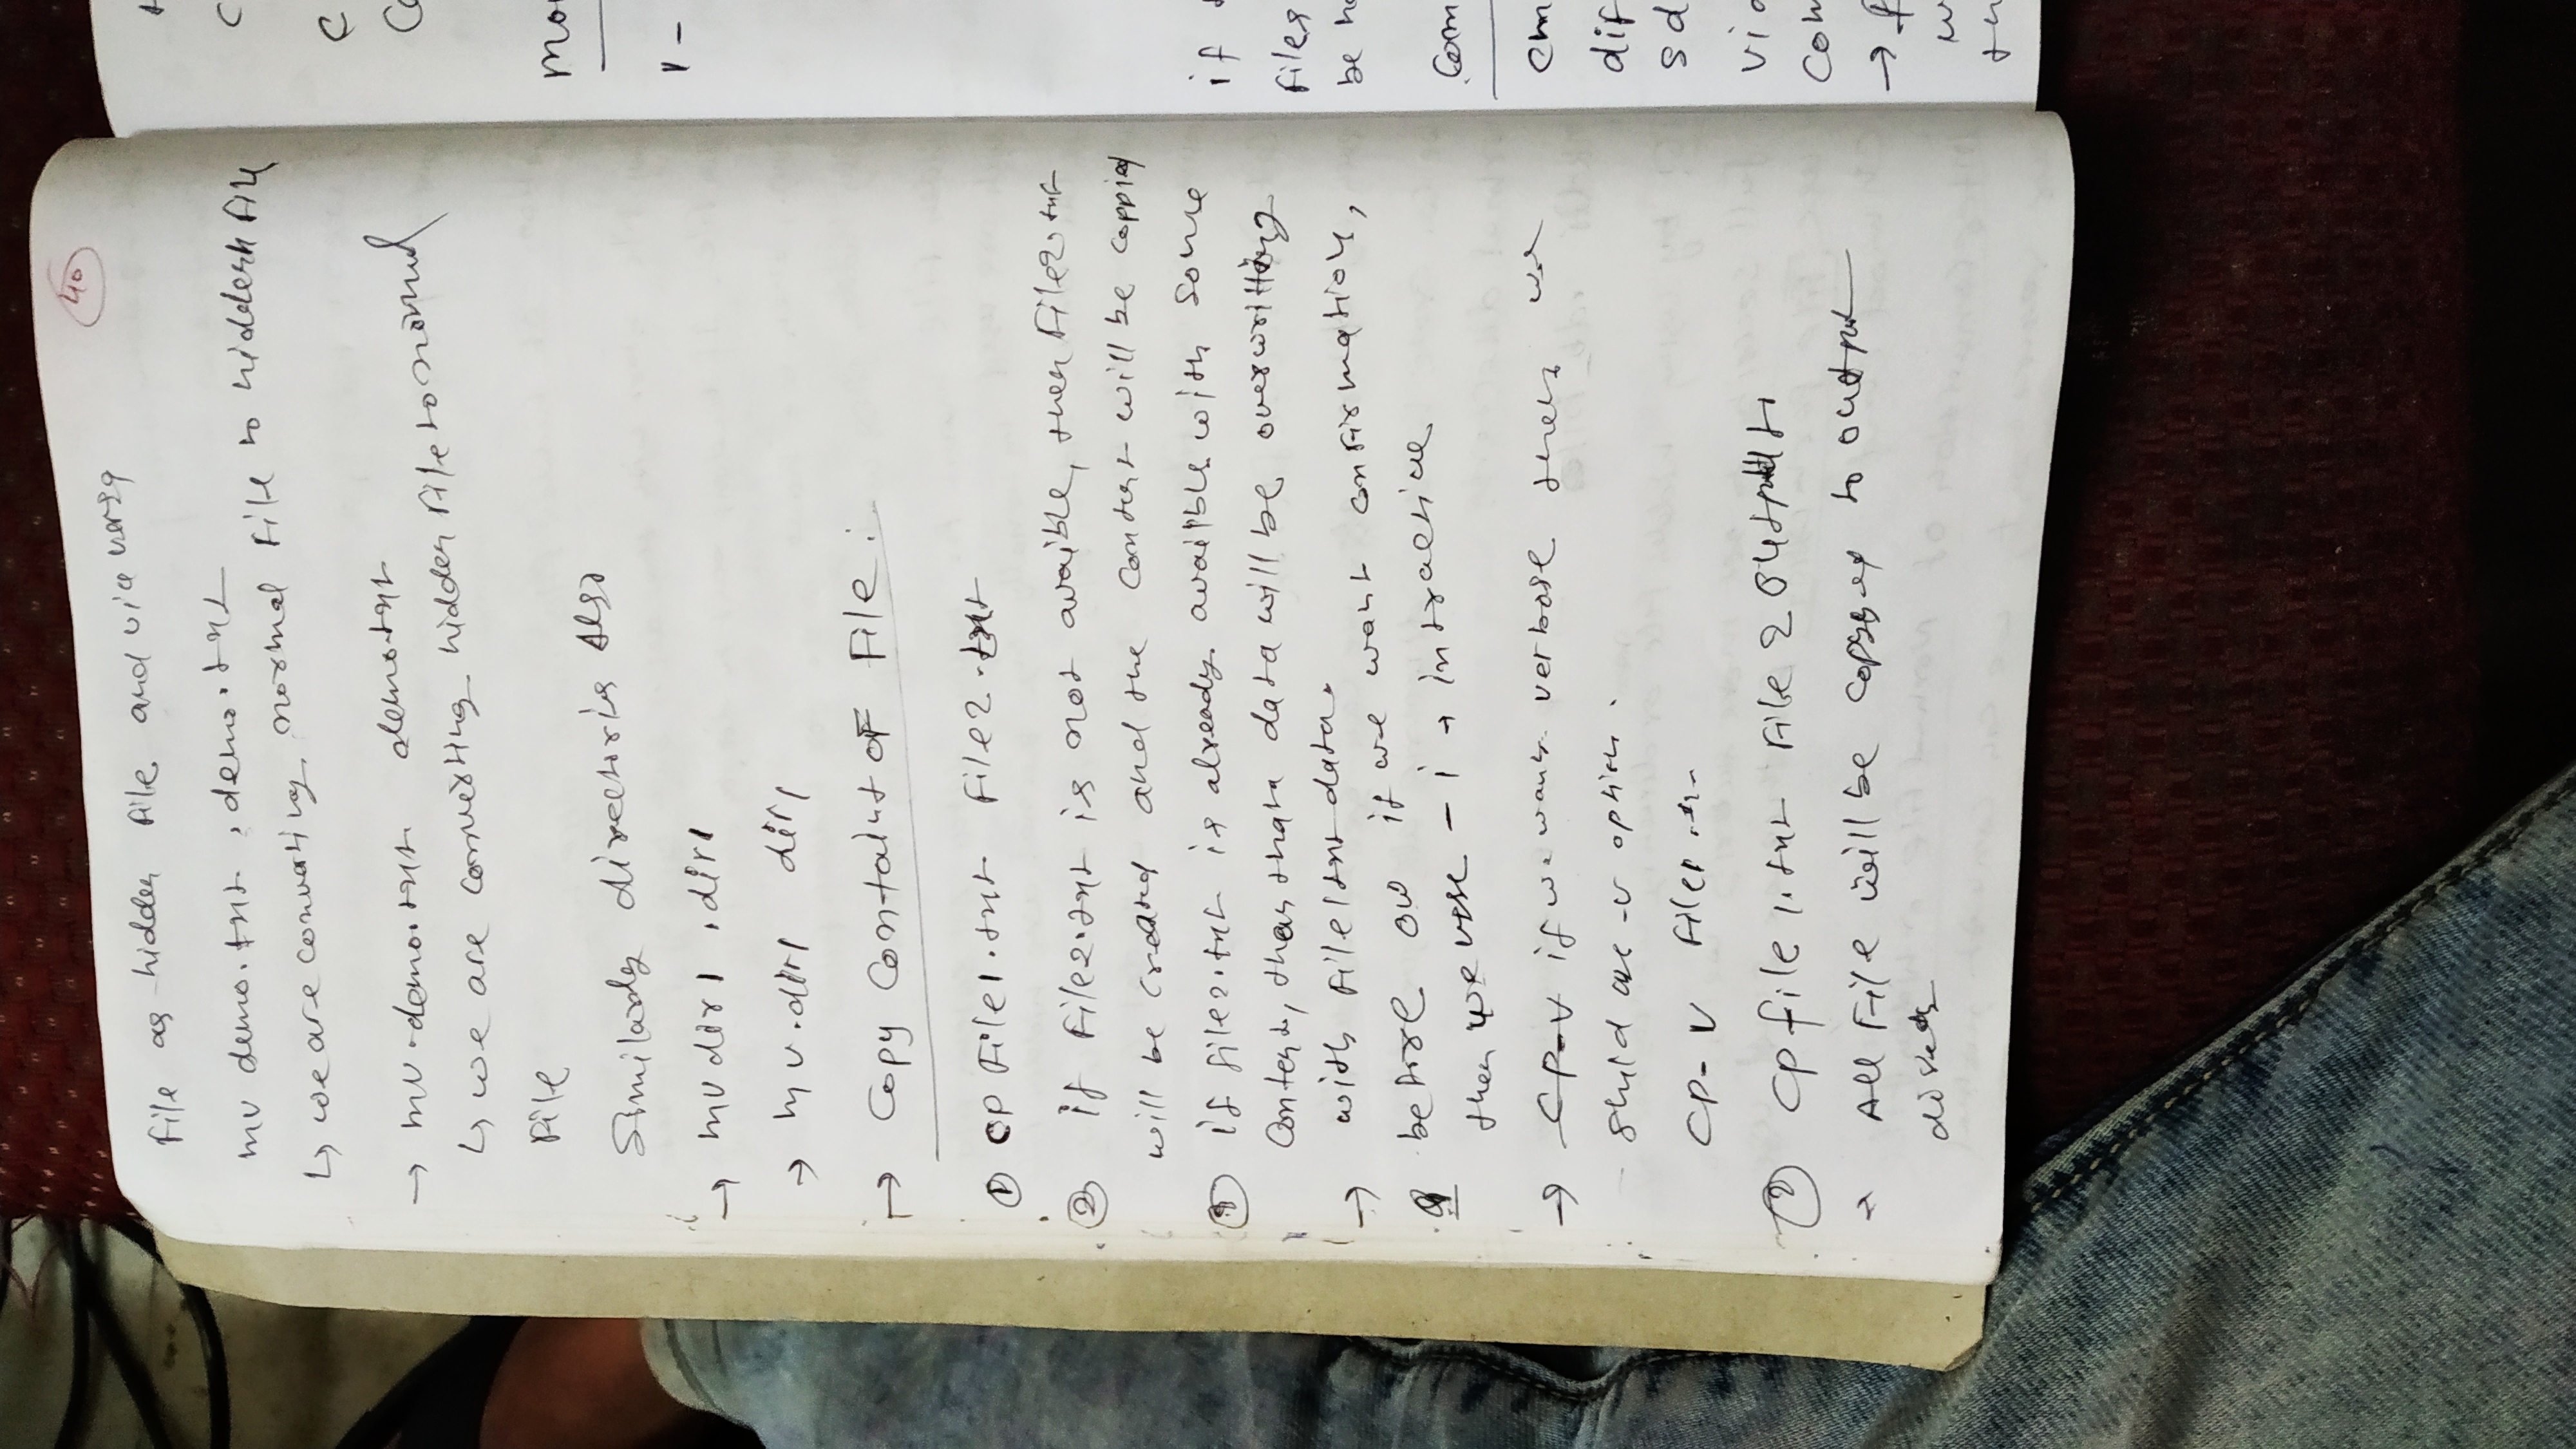 40
File as hidden file and vice versa
mv demo.txt .demo.txt
↳ we are converting normal file to hidden file
→ mv .demo.txt demo.txt
↳ we are converting hidden file to normal
File
Similarly directories Also
→ mv dir1 .dir1
→ mv .dir1 dir1
→ Copy Containt of File :
① cp File1.txt File2.txt
② if File2.txt is not avaible, then File2.txt
will be created and the content will be coppied
③ if file2.txt is already availble with some
Content, then data will be overwritting
→ with File1txt data.
before ow if we want confirmation,
then we use -i → intractive
→ cp-v if we want verbose then we
use -v option.
CP-V File1
cp file1.txt File2 output
→ All File will be to output
C
C
Mou
1-
if
Files
be
Com
cm
dif
sd
via
Com
→
w